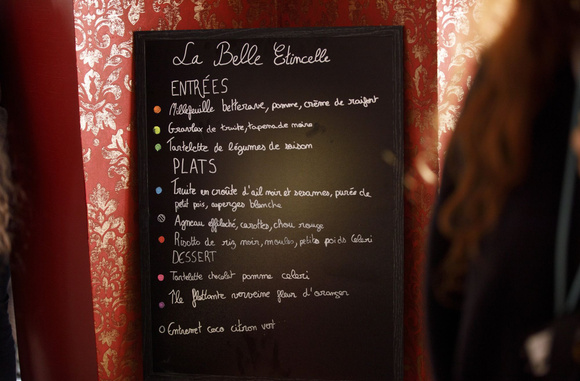 La Belle Etincelle
ENTRÉES
Millefeuille betterave, pomme, crème de raifort
Gravlax de truite, tapenade noire
Tartelette de légumes de saison
PLATS
Truite en croûte d'ail noir et sesames, purée de
petit pois, asperges blanche
Agneau effiloché, carottes, chou rouge
Risotto de riz noir, moules, petits poids Celeri
DESSERT
Tartelette chocolat pomme celeri
Ile flottante verveine fleur d'oranger
Entremet coco citron vert